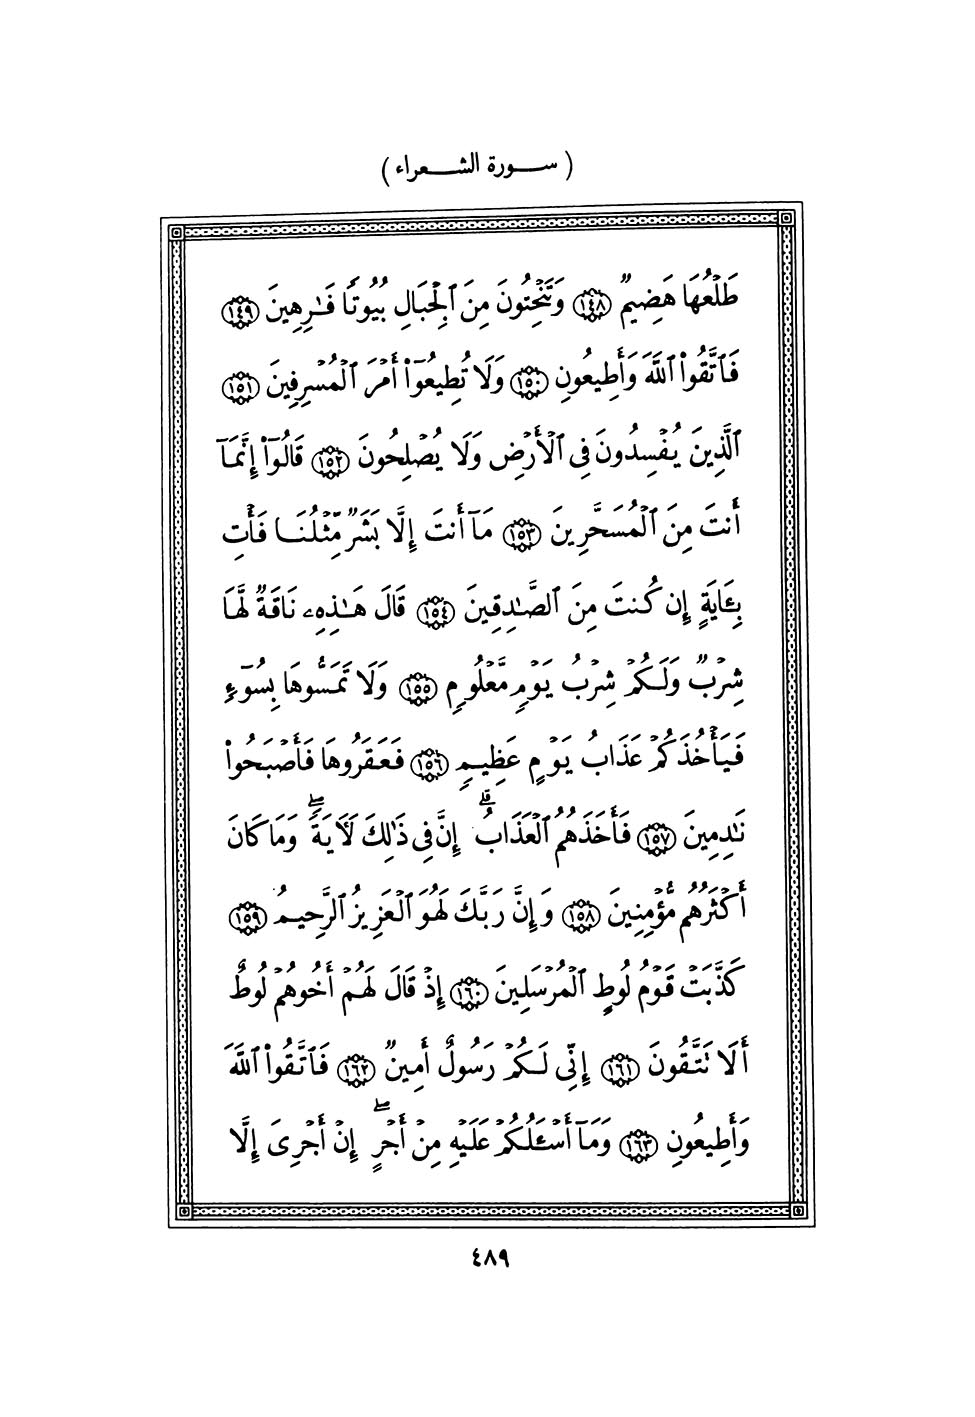 ( ســورة الشــعراء )
طَلْعُهَا هَضِيمٌ ١٤٨ وَتَنْحِتُونَ مِنَ ٱلْجِبَالِ بُيُوتًا فَـٰرِهِينَ ١٤٩
فَٱتَّقُوا۟ ٱللَّهَ وَأَطِيعُونِ ١٥٠ وَلَا تُطِيعُوٓا۟ أَمْرَ ٱلْمُسْرِفِينَ ١٥١
ٱلَّذِينَ يُفْسِدُونَ فِى ٱلْأَرْضِ وَلَا يُصْلِحُونَ ١٥٢ قَالُوٓا۟ إِنَّمَآ
أَنتَ مِنَ ٱلْمُسَحَّرِينَ ١٥٣ مَآ أَنتَ إِلَّا بَشَرٌ مِّثْلُنَا فَأْتِ
بِـَٔايَةٍ إِن كُنتَ مِنَ ٱلصَّـٰدِقِينَ ١٥٤ قَالَ هَـٰذِهِۦ نَاقَةٌ لَّهَا
شِرْبٌ وَلَكُمْ شِرْبُ يَوْمٍ مَّعْلُومٍ ١٥٥ وَلَا تَمَسُّوهَا بِسُوٓءٍ
فَيَأْخُذَكُمْ عَذَابُ يَوْمٍ عَظِيمٍ ١٥٦ فَعَقَرُوهَا فَأَصْبَحُوا۟
نَـٰدِمِينَ ١٥٧ فَأَخَذَهُمُ ٱلْعَذَابُ ۗ إِنَّ فِى ذَٰلِكَ لَـَٔايَةً ۖ وَمَا كَانَ
أَكْثَرُهُم مُّؤْمِنِينَ ١٥٨ وَإِنَّ رَبَّكَ لَهُوَ ٱلْعَزِيزُ ٱلرَّحِيمُ ١٥٩
كَذَّبَتْ قَوْمُ لُوطٍ ٱلْمُرْسَلِينَ ١٦٠ إِذْ قَالَ لَهُمْ أَخُوهُمْ لُوطٌ
أَلَا تَتَّقُونَ ١٦١ إِنِّى لَكُمْ رَسُولٌ أَمِينٌ ١٦٢ فَٱتَّقُوا۟ ٱللَّهَ
وَأَطِيعُونِ ١٦٣ وَمَآ أَسْـَٔلُكُمْ عَلَيْهِ مِنْ أَجْرٍ ۖ إِنْ أَجْرِىَ إِلَّا
٤٨٩